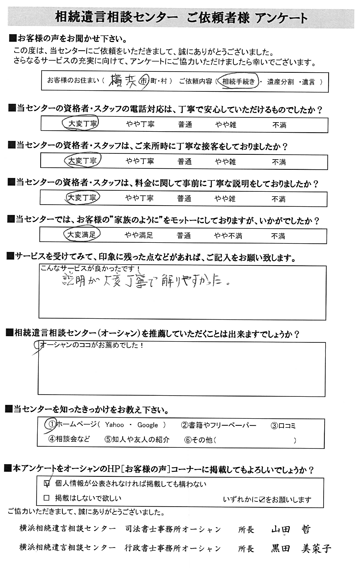 相続遺言相談センター ご依頼者様 アンケート
■お客様の声をお聞かせ下さい。
この度は、当センターにご依頼をいただきまして、誠にありがとうございました。
さらなるサービスの充実に向けて、アンケートにご協力いただけましたら幸いでございます。
お客様のお住まい ( 横浜 市・町・村 ) ご依頼内容 ( 相続手続き ・ 遺産分割 ・ 遺言 )
■当センターの資格者・スタッフの電話対応は、丁寧で安心していただけるものでしたか?
大変丁寧 やや丁寧 普通 やや雑 不満
■当センターの資格者・スタッフは、ご来所時に丁寧な接客をしておりましたか?
大変丁寧 やや丁寧 普通 やや雑 不満
■当センターの資格者・スタッフは、料金に関して事前に丁寧な説明をしておりましたか?
大変丁寧 やや丁寧 普通 やや雑 不満
■当センターでは、お客様の“家族のように”をモットーにしておりますが、いかがでしたか?
大変満足 やや満足 普通 やや不満 不満
■サービスを受けてみて、印象に残った点などがあれば、ご記入をお願い致します。
こんなサービスが良かったです!
説明が大変丁寧で解りやすかった。
■相続遺言相談センター(オーシャン)を推薦していただくことは出来ますでしょうか?
オーシャンのココがお薦めでした!
■当センターを知ったきっかけをお教え下さい。
①ホームページ( Yahoo ・ Google ) ②書籍やフリーペーパー ③口コミ
④相談会など ⑤知人や友人の紹介 ⑥その他( )
■本アンケートをオーシャンのHP[お客様の声]コーナーに掲載してもよろしいでしょうか?
☑ 個人情報が公表されなければ掲載しても構わない
□ 掲載はしないで欲しい いずれかに☑をお願いします
ご協力いただきまして、誠にありがとうございました。
横浜相続遺言相談センター 司法書士事務所オーシャン 所長 山田 哲
横浜相続遺言相談センター 行政書士事務所オーシャン 所長 黒田 美菜子